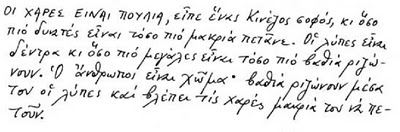 ΟΙ ΧΑΡΕΣ ΕΙΝΑΙ ΠΟΥΛΙΑ, εἶπε ἕνας Κινέζος σοφός, κι ὅσο
πιό δυνατές εἶναι τόσο πιό μακριά πετᾶνε. Οἱ λύπες εἶναι
δέντρα κι ὅσο πιό μεγάλες εἶναι τόσο πιό βαθιά ριζώ-
νουν. Ὁ ἄνθρωποι εἶναι χῶμα· βαθιά ριζώνουν μέσα
του οἱ λύπες καί βλέπει τίς χαρές μακριά του νά πε-
τοῦν.